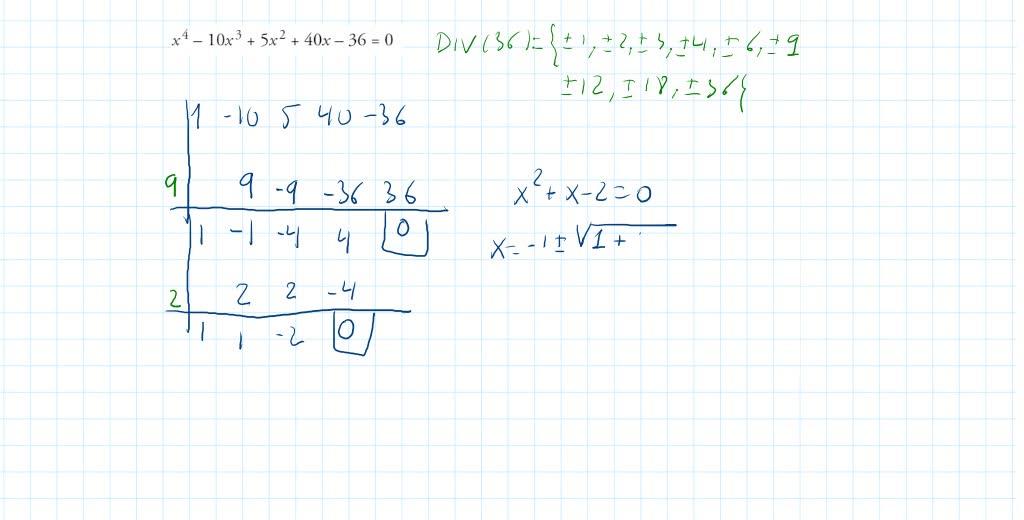 x⁴ – 10x³ + 5x² + 40x – 36 = 0
DIV(36)={±1,±2,±3,±4,±6,±9
±12,±18,±36}
1 -10 5 40 -36
9 9 -9 -36 36
1 -1 -4 4 0
2 2 2 -4
1 1 -2 0
x²+x-2=0
x=-1±√1+